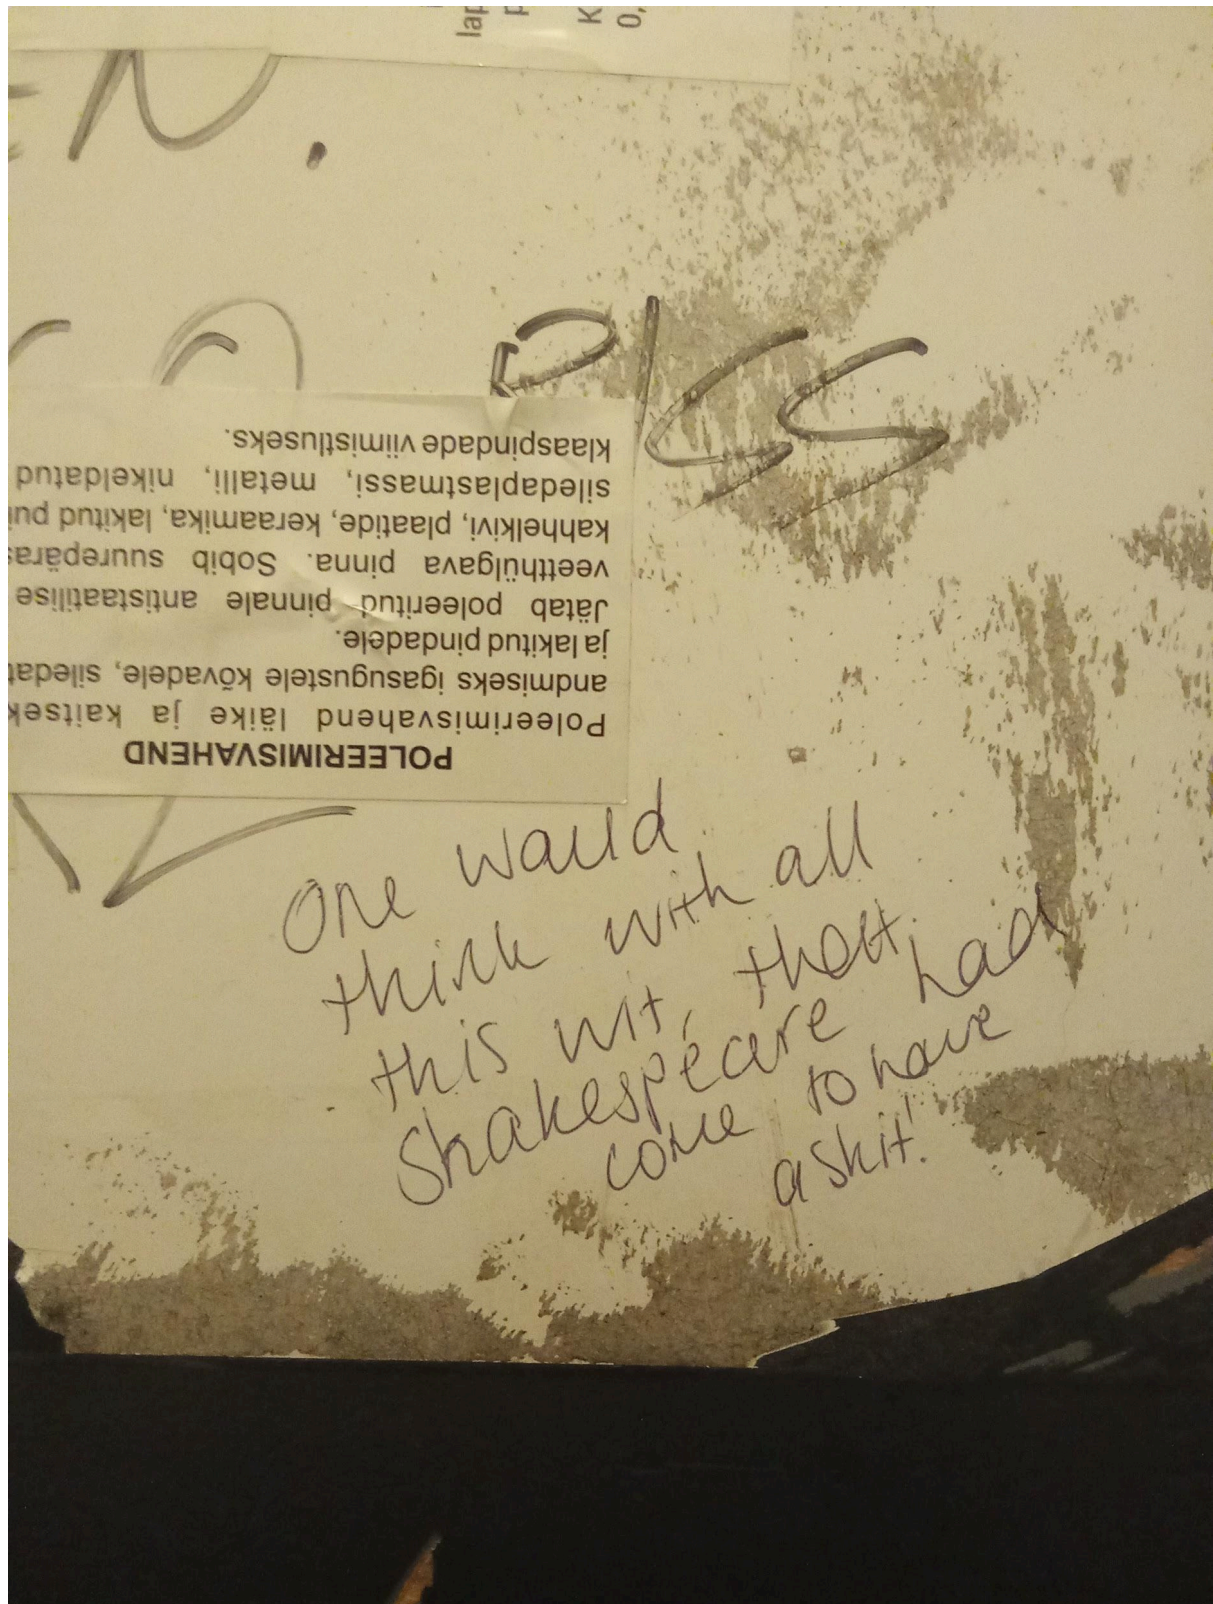 PISS
POLEERIMISVAHEND
Poleerimisvahend läike ja kaitsek
andmiseks igasugustele kõvadele, siledat
ja lakitud pindadele.
Jätab poleeritud pinnale antistaatilise
veetthülgava pinna. Sobib suurepäras
kahhelkivi, plaatide, keraamika, lakitud pui
siledaplastmassi, metalli, nikeldatud
klaaspindade viimistluseks.
One would
think with all
this wit, that
Shakespeare had
come to have
a shit!